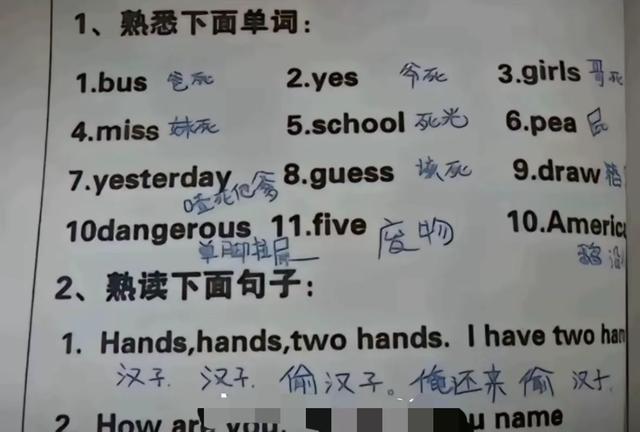 1、熟悉下面单词：
1.bus 爸死 2.yes 爷死 3.girls 哥死
4.miss 妹死 5.school 死光 6.pea 屁
7.yesterday 8.guess 该死 9.draw
喳死他爹
10dangerous 11.five 废物 10.Americ
单脚拉屎
2、熟读下面句子：
1. Hands,hands,two hands. I have two han
汉子. 汉子. 偷汉子。俺还来偷汉子
2. How are you. u name